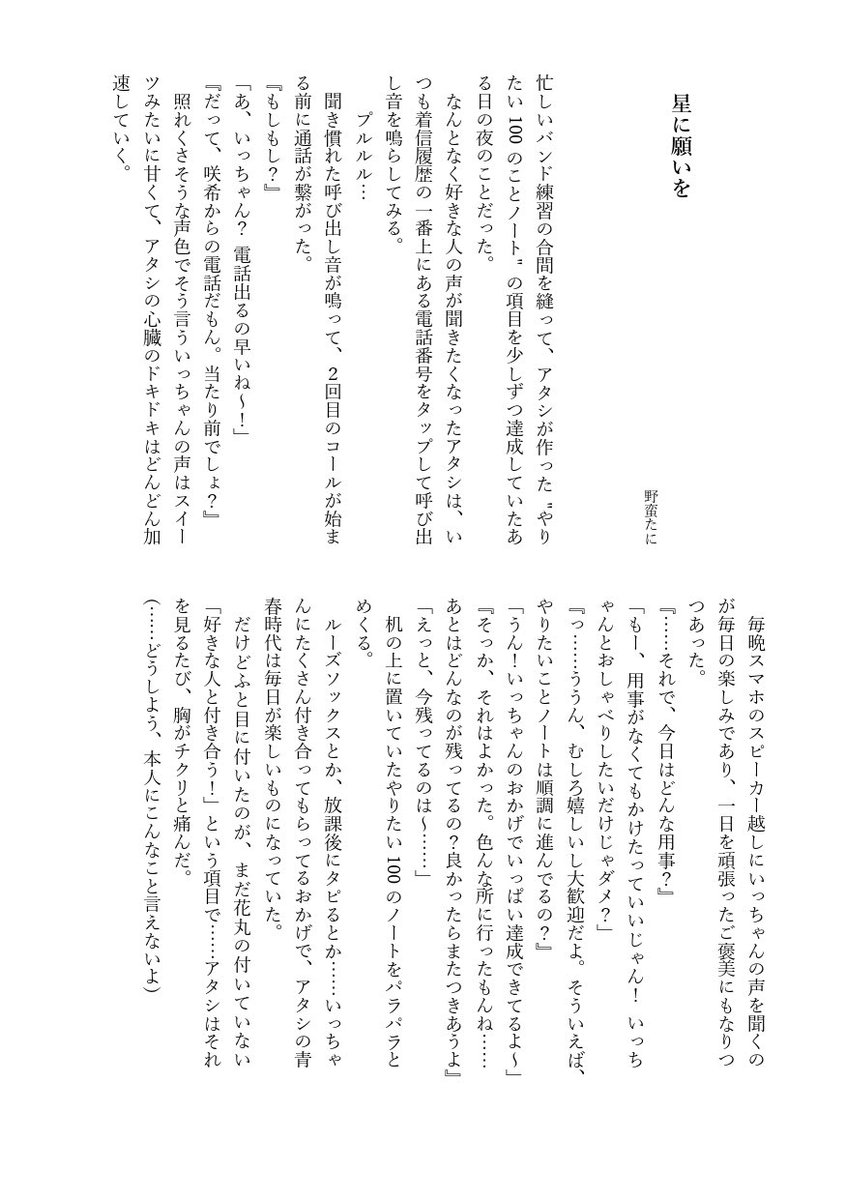 星に願いを
野蛮たに
忙しいバンド練習の合間を縫って、アタシが作った〝やり
たい100のことノート〟の項目を少しずつ達成していたあ
る日の夜のことだった。
なんとなく好きな人の声が聞きたくなったアタシは、い
つも着信履歴の一番上にある電話番号をタップして呼び出
し音を鳴らしてみる。
プルルル…
聞き慣れた呼び出し音が鳴って、２回目のコールが始ま
る前に通話が繋がった。
『もしもし？』
「あ、いっちゃん？ 電話出るの早いね〜！」
『だって、咲希からの電話だもん。当たり前でしょ？』
照れくさそうな声色でそう言ういっちゃんの声はスイー
ツみたいに甘くて、アタシの心臓のドキドキはどんどん加
速していく。
毎晩スマホのスピーカー越しにいっちゃんの声を聞くの
が毎日の楽しみであり、一日を頑張ったご褒美にもなりつ
つあった。
『……それで、今日はどんな用事？』
「もー、用事がなくてもかけたっていいじゃん！ いっち
ゃんとおしゃべりしたいだけじゃダメ？」
『っ……ううん、むしろ嬉しいし大歓迎だよ。そういえば、
やりたいことノートは順調に進んでるの？』
「うん！いっちゃんのおかげでいっぱい達成できてるよ〜」
『そっか、それはよかった。色んな所に行ったもんね……
あとはどんなのが残ってるの？良かったらまたつきあうよ』
「えっと、今残ってるのは〜……」
机の上に置いていたやりたい100のノートをパラパラと
めくる。
ルーズソックスとか、放課後にタピるとか……いっちゃ
んにたくさん付き合ってもらってるおかげで、アタシの青
春時代は毎日が楽しいものになっていた。
だけどふと目に付いたのが、まだ花丸の付いていない
「好きな人と付き合う！」という項目で……アタシはそれ
を見るたび、胸がチクリと痛んだ。
(……どうしよう、本人にこんなこと言えないよ)